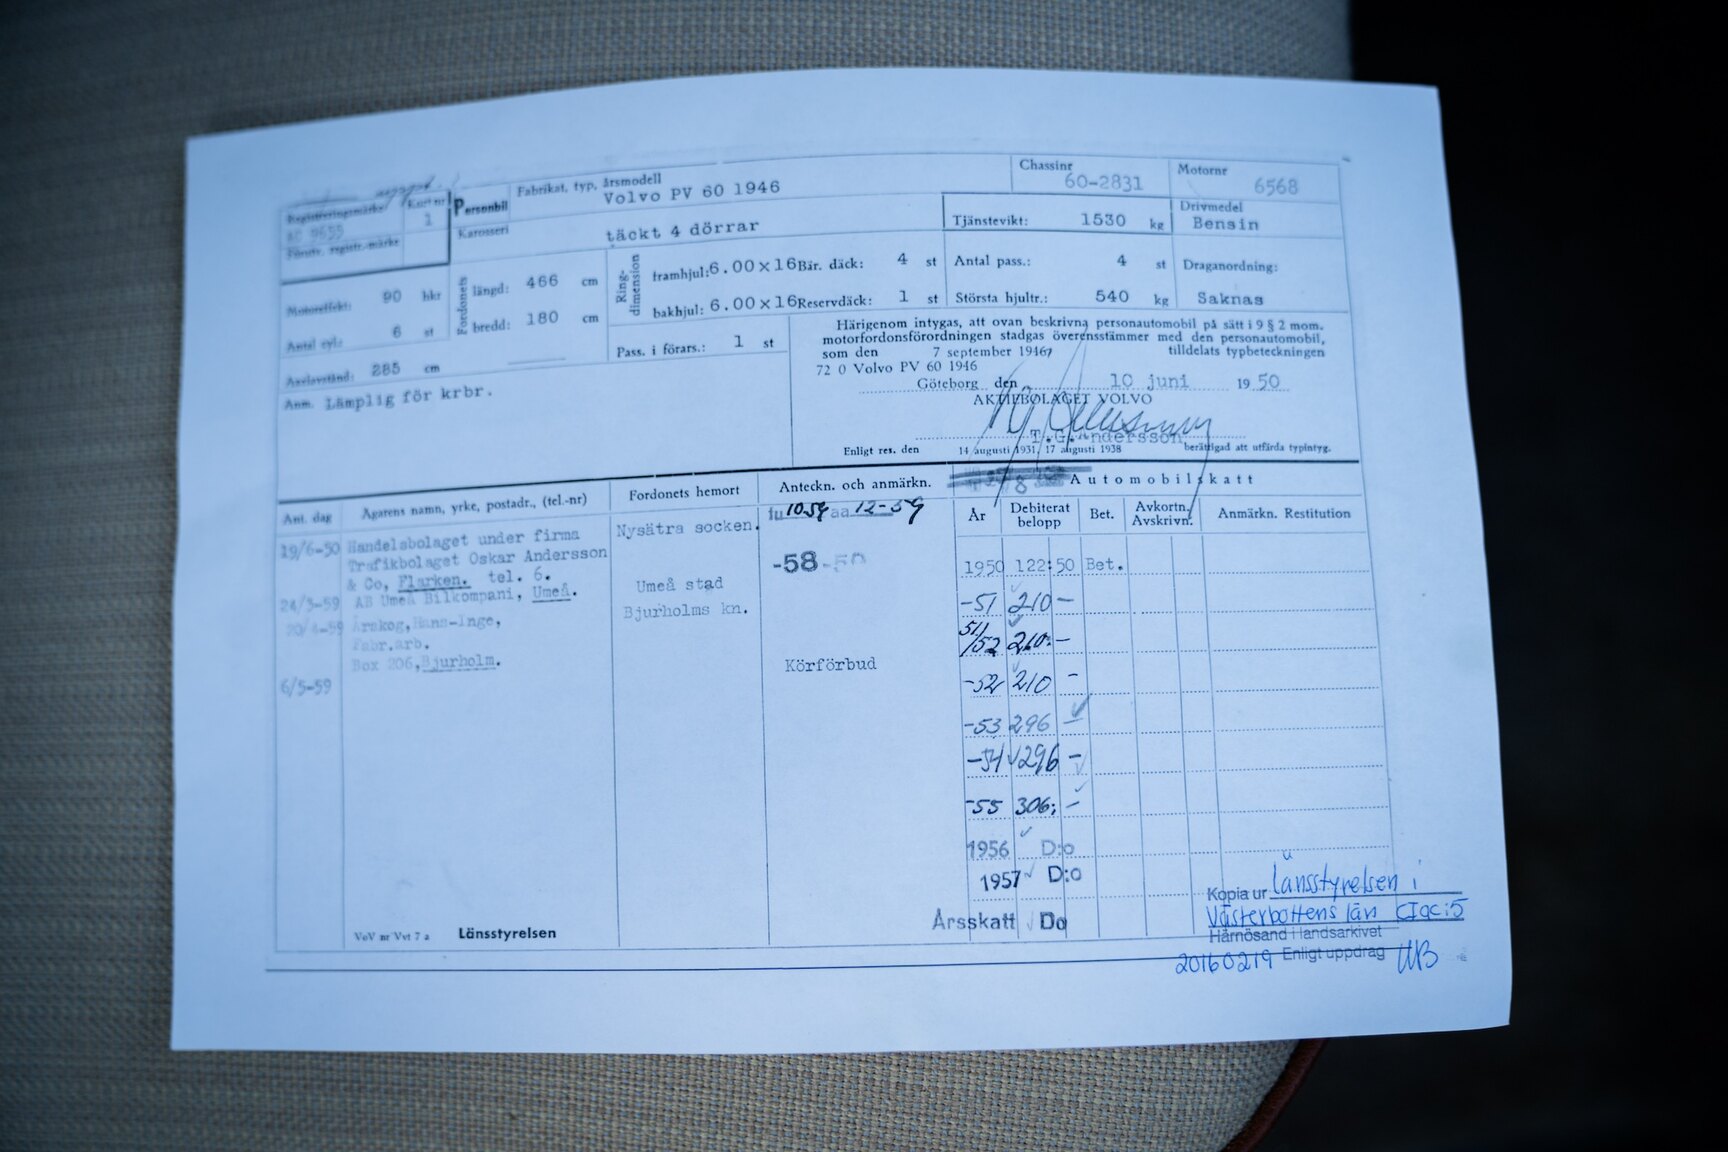 Registreringsmärke
Kort nr
AC 9655
1
Förutv. registr.-märke
Personbil
Fabrikat, typ, årsmodell
Volvo PV 60 1946
Chassinr
60-2831
Motornr
6568
Karosseri
täckt 4 dörrar
Tjänstevikt: 1530 kg
Drivmedel
Bensin
Motoreffekt: 90 hkr
Fordonets
längd: 466 cm
Ring-dimension
framhjul: 6.00x16 Bär. däck: 4 st
Antal pass.: 4 st
Draganordning:
Antal cyl: 6 st
bredd: 180 cm
bakhjul: 6.00x16 Reservdäck: 1 st
Största hjultr.: 540 kg
Saknas
Axelavstånd: 285 cm
Pass. i förars.: 1 st
Härigenom intygas, att ovan beskrivna personautomobil på sätt i 9 § 2 mom.
motorfordonsförordningen stadgas överensstämmer med den personautomobil,
som den 7 september 1946, tilldelats typbeteckningen
72 0 Volvo PV 60 1946
Göteborg den 10 juni 1950
AKTIEBOLAGET VOLVO
T.G.Andersson
Enligt res. den 14 augusti 1931, 17 augusti 1938 berättigad att utfärda typintyg.
Anm. Lämplig för krbr.
Ant. dag
Ägarens namn, yrke, postadr., (tel.-nr)
Fordonets hemort
Anteckn. och anmärkn.
Automobilskatt
År
Debiterat belopp
Bet.
Avkortn. Avskrivn.
Anmärkn. Restitution
19/6-50 Handelsbolaget under firma
Trafikbolaget Oskar Andersson
& Co, Flarken. tel. 6.
Nysätra socken.
24/3-59 AB Umeå Bilkompani, Umeå.
Umeå stad
20/4-59 Årskog, Hans-Inge,
Fabr.arb.
Box 206, Bjurholm.
Bjurholms kn.
6/5-59
10 59 aa 12-59
-58-59
Körförbud
1950 122:50 Bet.
-51 210 -
51/52 210:-
-52 210 -
-53 296 -
-54 296 -
-55 306:-
1956 D:o
1957 D:o
Årsskatt Do
VoV nr Vvt 7 a
Länsstyrelsen
Kopia ur Länsstyrelsen i
Västerbottens län CIac:5
Härnösand i landsarkivet
20160219 Enligt uppdrag UB